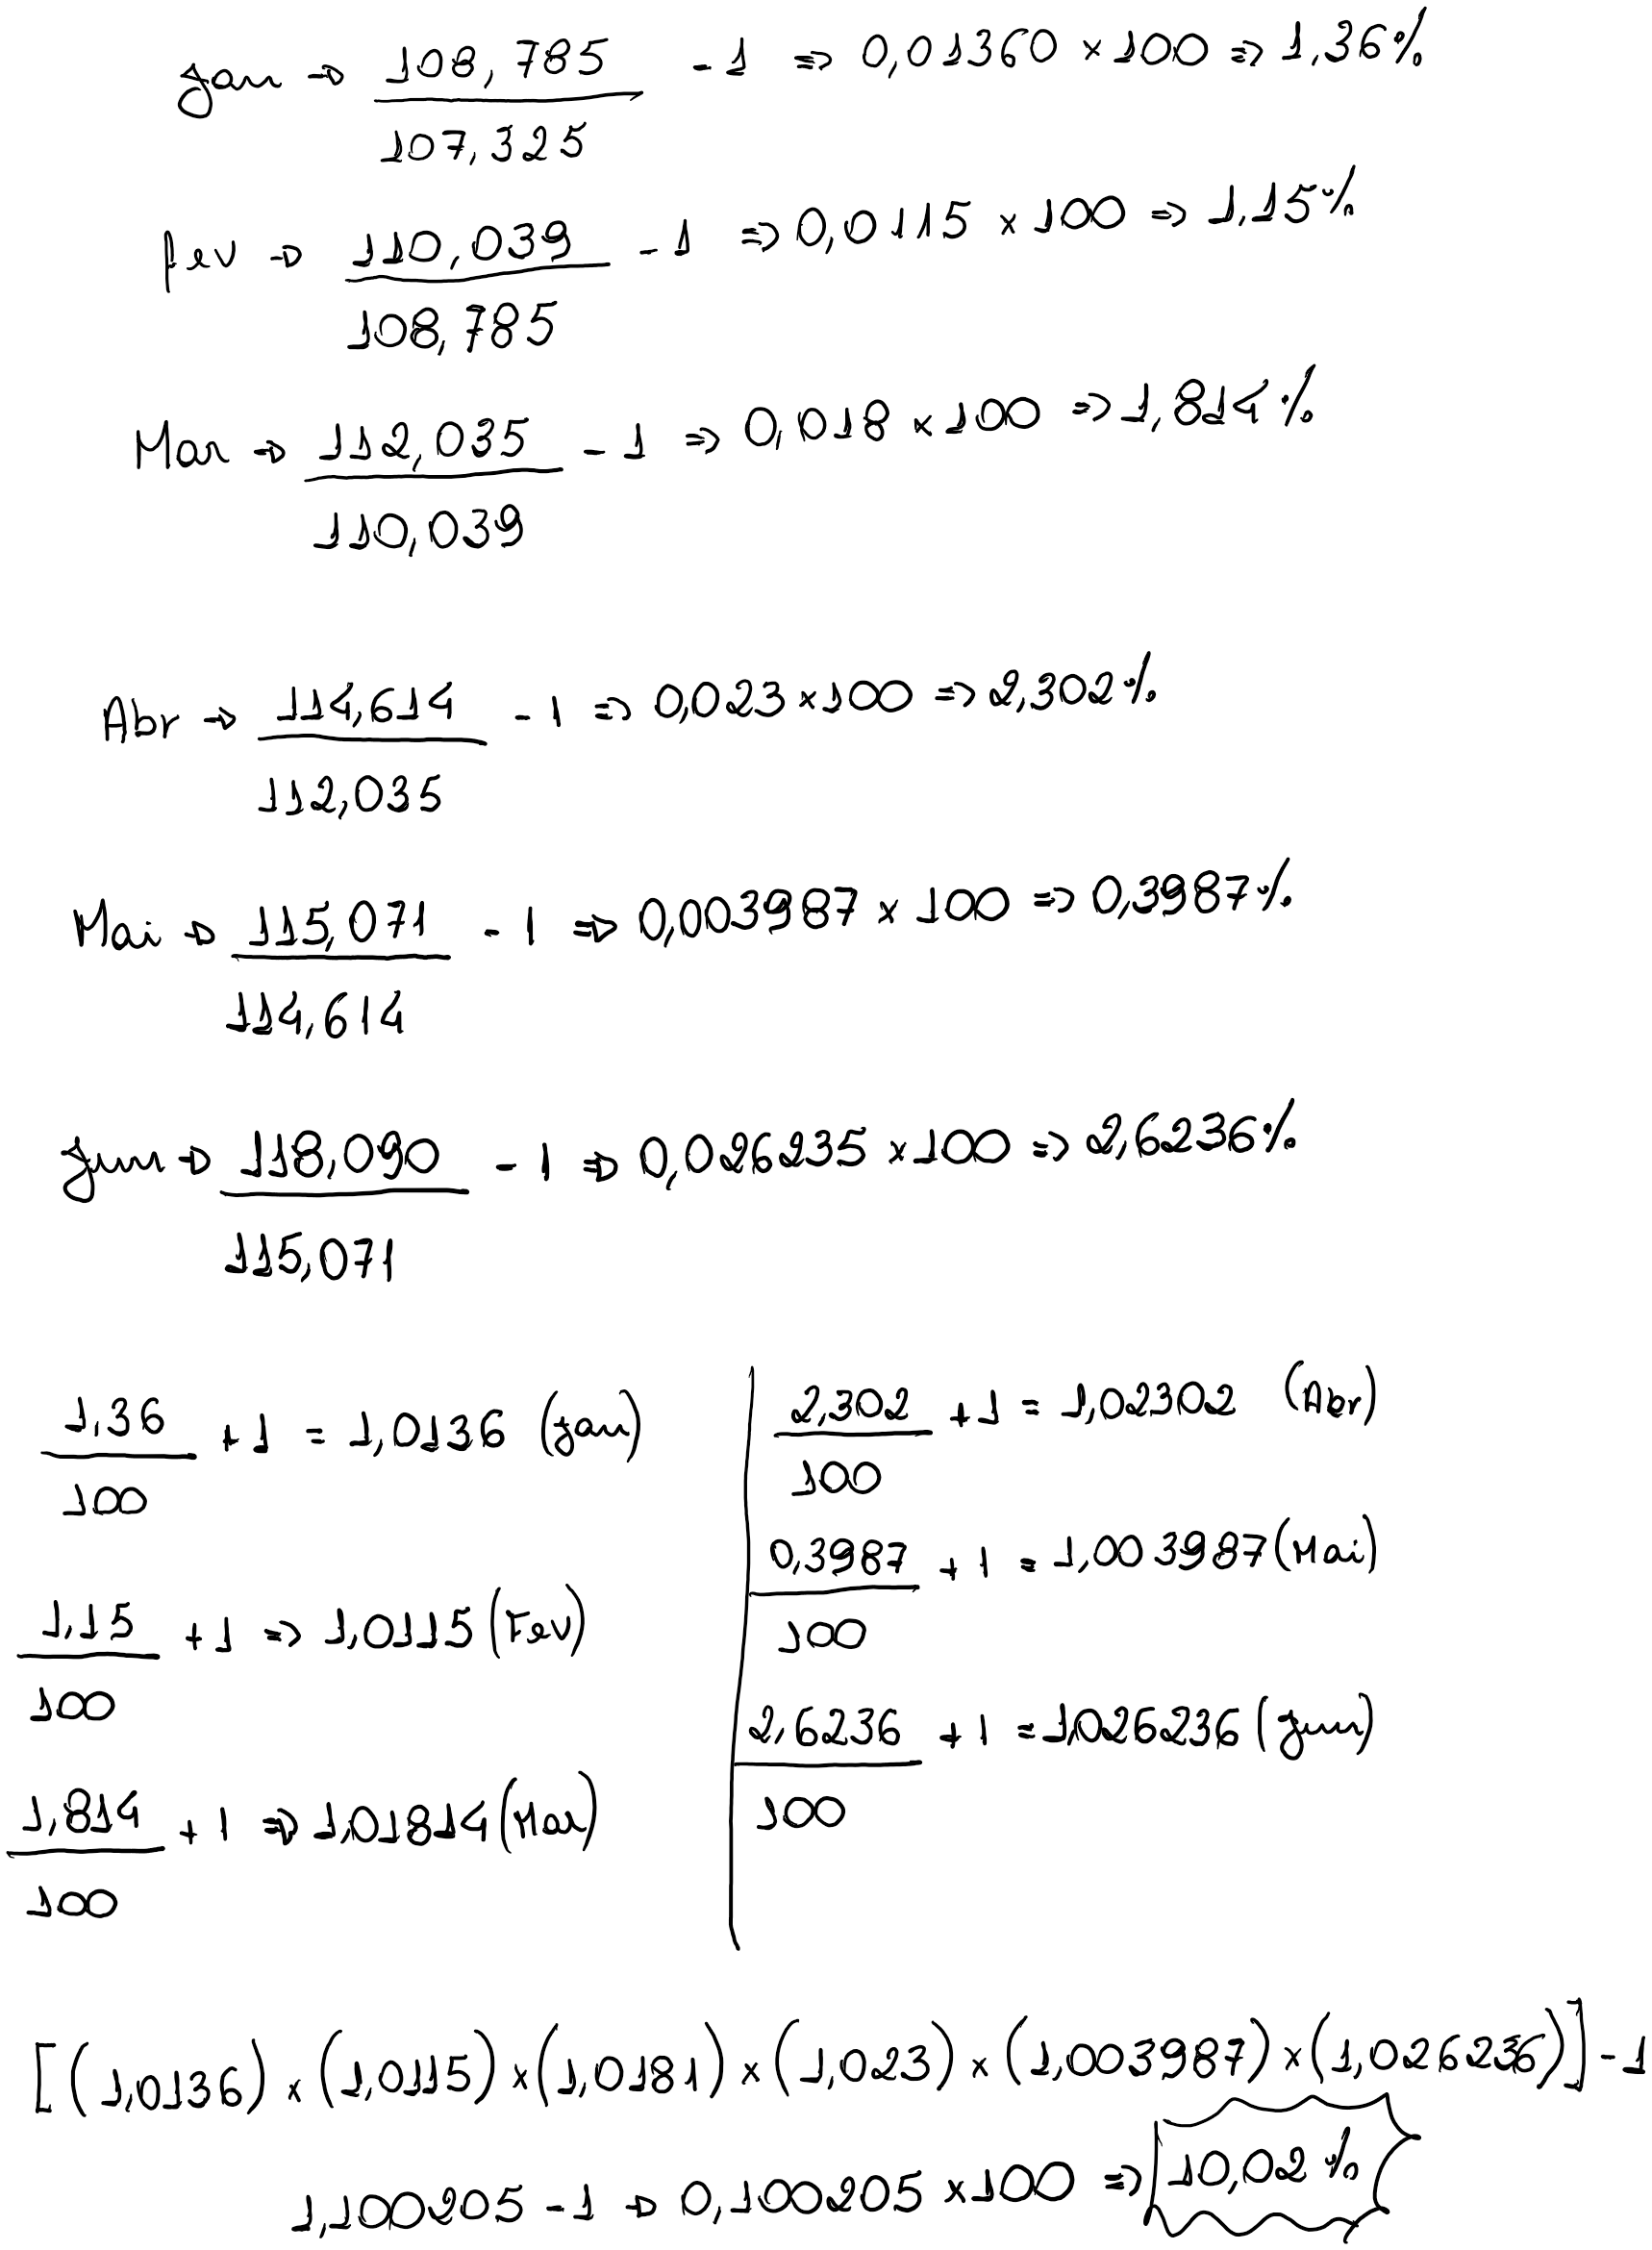 Jan → 108,785 / 107,325 - 1 ⇒ 0,01360 × 100 ⇒ 1,36%
Fev → 110,039 / 108,785 - 1 ⇒ 0,0115 × 100 ⇒ 1,15%
Mar → 112,035 / 110,039 - 1 ⇒ 0,018 × 100 ⇒ 1,814%
Abr → 114,614 / 112,035 - 1 ⇒ 0,023 × 100 ⇒ 2,302%
Mai → 115,071 / 114,614 - 1 ⇒ 0,003987 × 100 ⇒ 0,3987%
Jun → 118,090 / 115,071 - 1 ⇒ 0,026235 × 100 ⇒ 2,6236%
1,36 / 100 + 1 = 1,0136 (Jan)
1,15 / 100 + 1 ⇒ 1,0115 (Fev)
1,814 / 100 + 1 ⇒ 1,01814 (Mar)
2,302 / 100 + 1 = 1,02302 (Abr)
0,3987 / 100 + 1 = 1,003987 (Mai)
2,6236 / 100 + 1 = 1,026236 (Jun)
[(1,0136) × (1,0115) × (1,0181) × (1,023) × (1,003987) × (1,026236)] - 1
1,100205 - 1 → 0,100205 × 100 ⇒ 10,02%